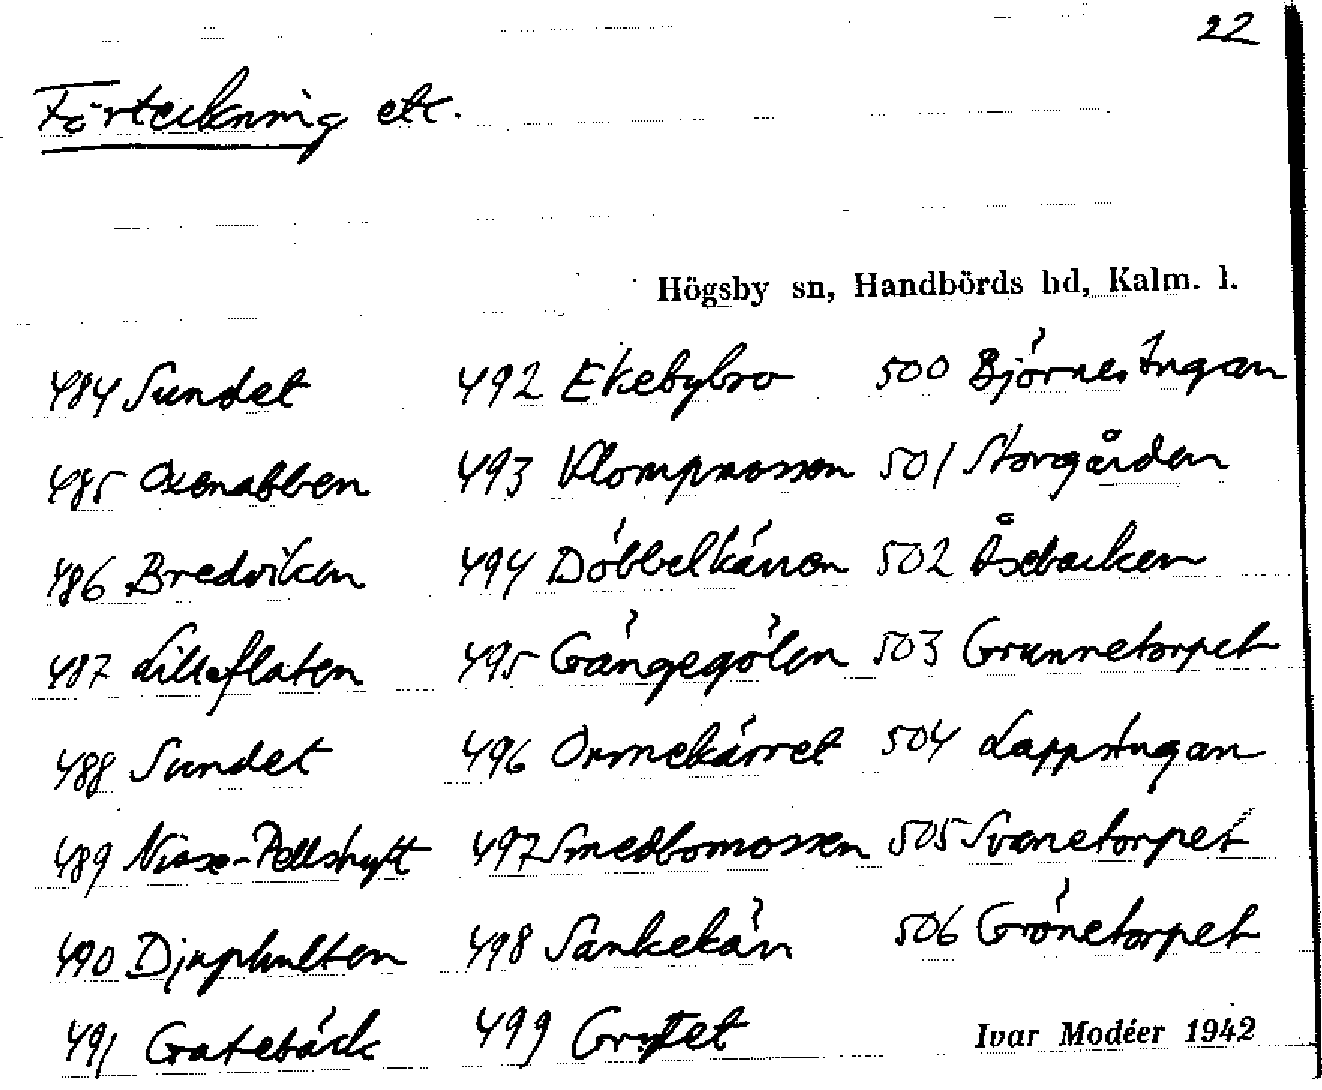 22
Förteckning etc.
Högsby sn, Handbörds hd, Kalm. l.
484 Sundet 492 Ekebybro 500 Björnestugan
485 Oxenabben 493 Klompmossen 501 Storgården
486 Bredviken 494 Döbbelkärren 502 Åsebacken
487 Lilleflaten 495 Gängegölen 503 Grunnetorpet
488 Sundet 496 Ormekärret 504 Lappstugan
489 Nisse-Pellstuft 497 Smedbomossen 505 Svenetorpet
490 Djuphulten 498 Sänkekän 506 Grönetorpet
491 Gatebäck 499 Grytet
Ivar Modéer 1942